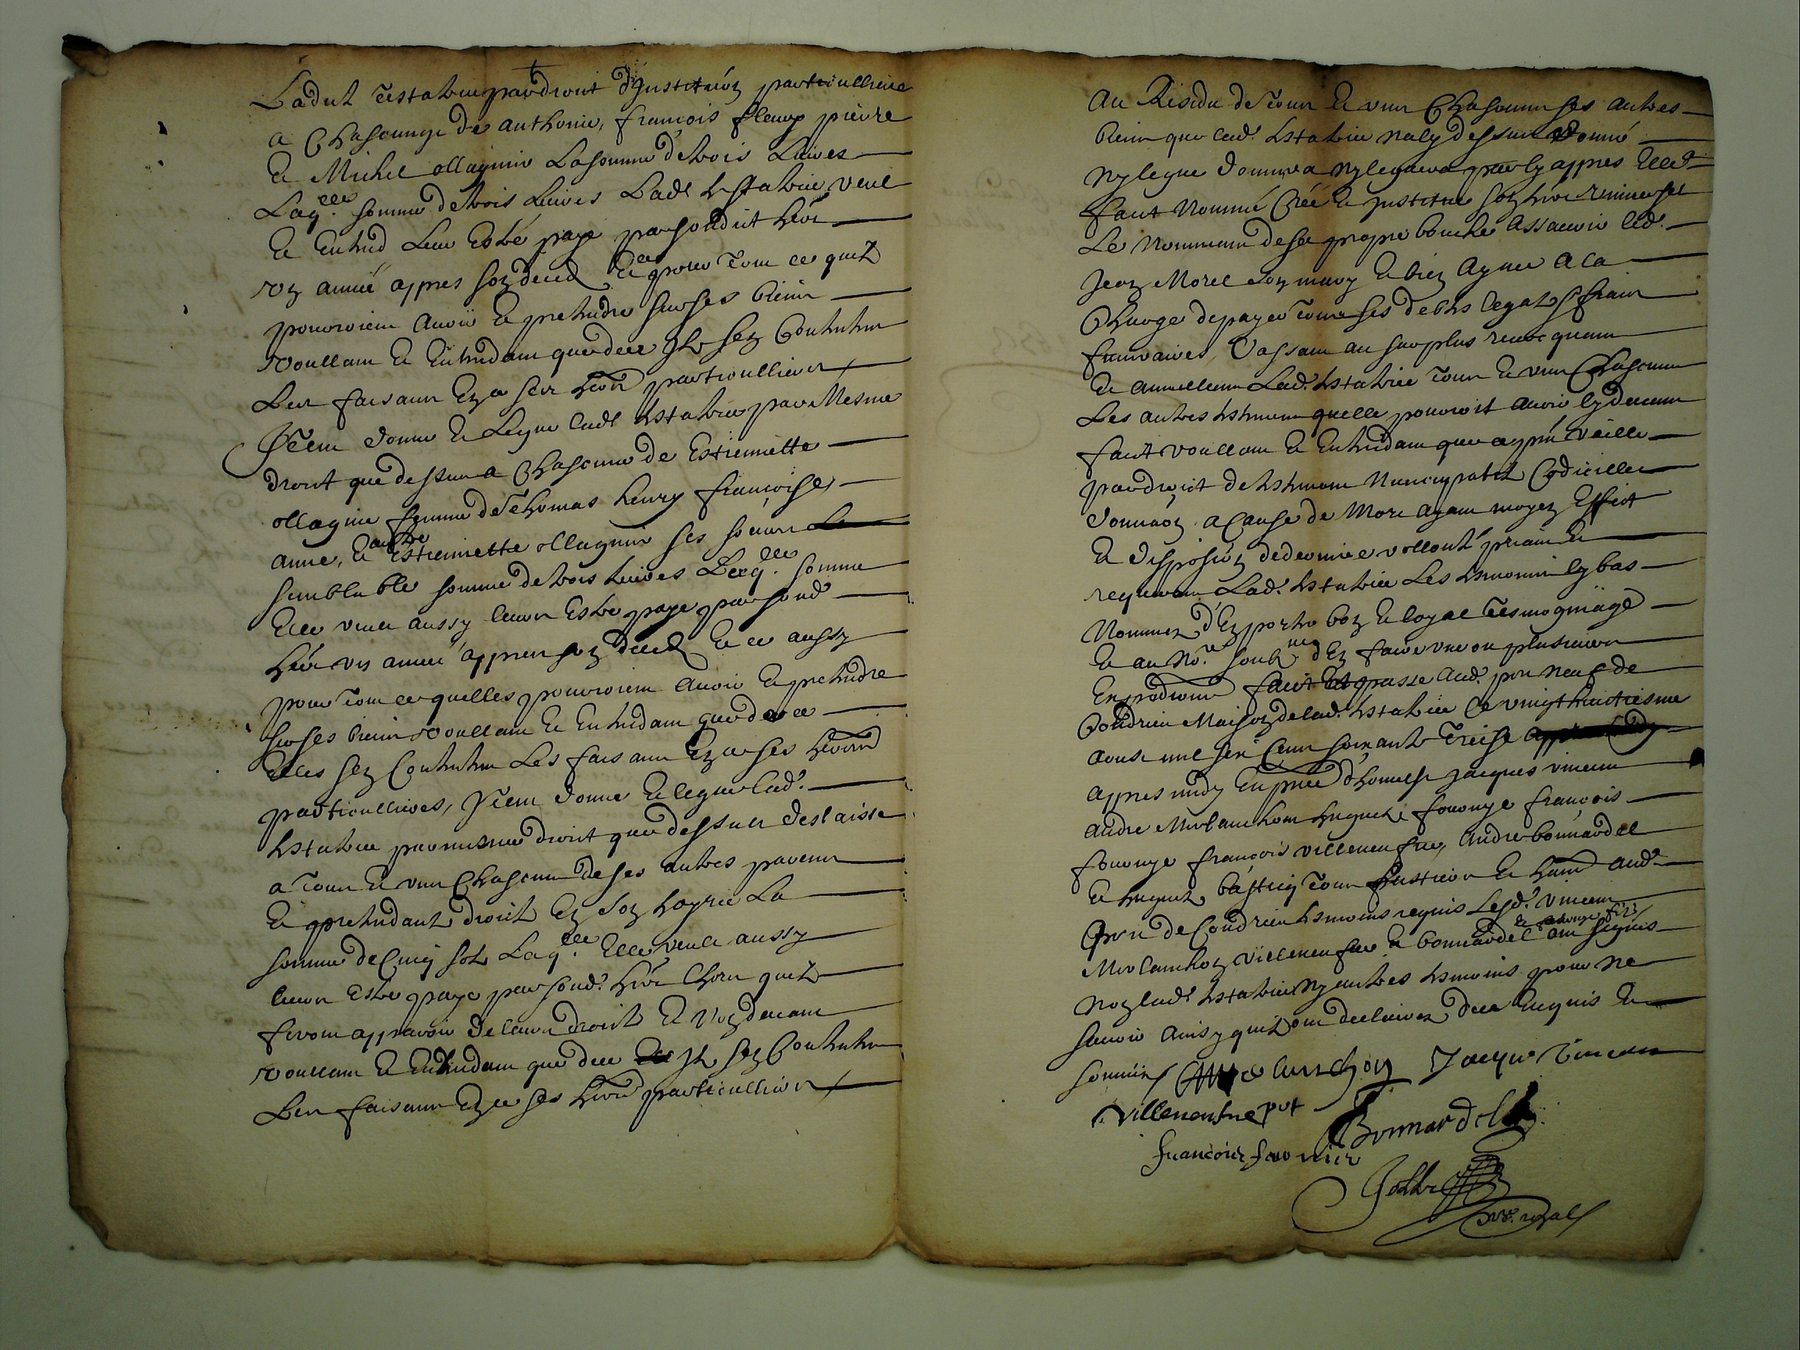 Ladite testatrice par droit d'Institu͠on particulliere
a Chascungz de Anthonie, françois fleury pierre
Et Michel ollagnier La somme de trois Livres
Laqlle somme de trois Livres Lad testatrice veut
Et Entend Leur Estre payé par sondit heri
un année appres son deced Et ce pour tout ce quilz
pourroient avoir Et pretendre sur ses biens
Voullant Et Entendant que de ce ilz sen Contentent
Les faisant En ce ses heri particulliers
Item donne Et Legue lad testatrice par Mesme
droit que dessus a Chascune de Estiennette
ollagnier femme de Thomas henry françoise
anne, Et autre Estiennette ollagnier ses soeurs
semblable somme de trois Livres Laqlle somme
Elle veut aussy leur Estre payé par sond
heri un année appres son deced Et ce aussy
pour tout ce quelles pourroient avoir Et pretendre
sur ses biens Voullant Et Entendant que de ce
Elles sen Contentent Les faisant En ce ses heri
particullieres, Item donne Et legue lad.
testatrice par mesme droit que dessus Et laisse
a tous Et uns Chascuns de ses autres parens
Et pretendant droict En son hoyrie La
somme de Cinq solz Laqlle Elle veut aussy
leur Estre payé par sond. heri Lhors quilz
feront apparoir de leur droict Et Non devant
voullant Et Entendant que de ce ilz sen Contentent
Les faisant En ce ses heri particulliers
Au Residu de tous Et uns Chascuns ses autres
biens que lad. testatrice na cy dessus donné
Ny legue donnera ny leguera par cy appres Elle
faict Nommé Créé Et Institue son heri universel
Le Nommant de sa propre bouche Assavoir led.
Jean Morel son mary Et bien Aymé A la
Charge de payer tous ses debtes legatz & frais
funeraires, Cassant au surplus revocquant
Et annullant Lad. testatrice tous Et uns Chascuns
Les autres testament quelle pourroit avoir cy devant
faict voullant Et Entendant que ce pnt vaille
par droict de testament Nuncupatif Codicille
donna͠on a Cause de Mort ayant moyen Effect
Et disposi͠on de derniere vollonté priant Et
requerant Lad. testatrice Les tesmoins cy bas
Nommez d'En porter bon Et loyal tesmognage
Et au No.re soubné d'En faire un ou plusieurs
Expedi͠ons faict Et passe aud. port neuf de
Condrieu Maison de lad. testatrice Ce vingt huictiesme
aoust mil six Cent soixante treise
appres midy En pnce d'honneste Jacques vincent
andre Merlanchon hugues fournye françois
fournye françois villeneufve, andre bonnardel
Et hugues bastier tous ha͠nt aud.
port de Condrieu tesmoins requis Lesd. vincent
Merlanchon villeneufve Et bonnardel & fournye filz ont signés
Non lad. testatrice Ny autres tesmoins pour ne
scavoir ainsy quilz ont declairer de ce Enquis Et
sommés Merlanchon Jacque Vincent
villeneufve pnt
Bonnardel
francois fournier
no.re royal